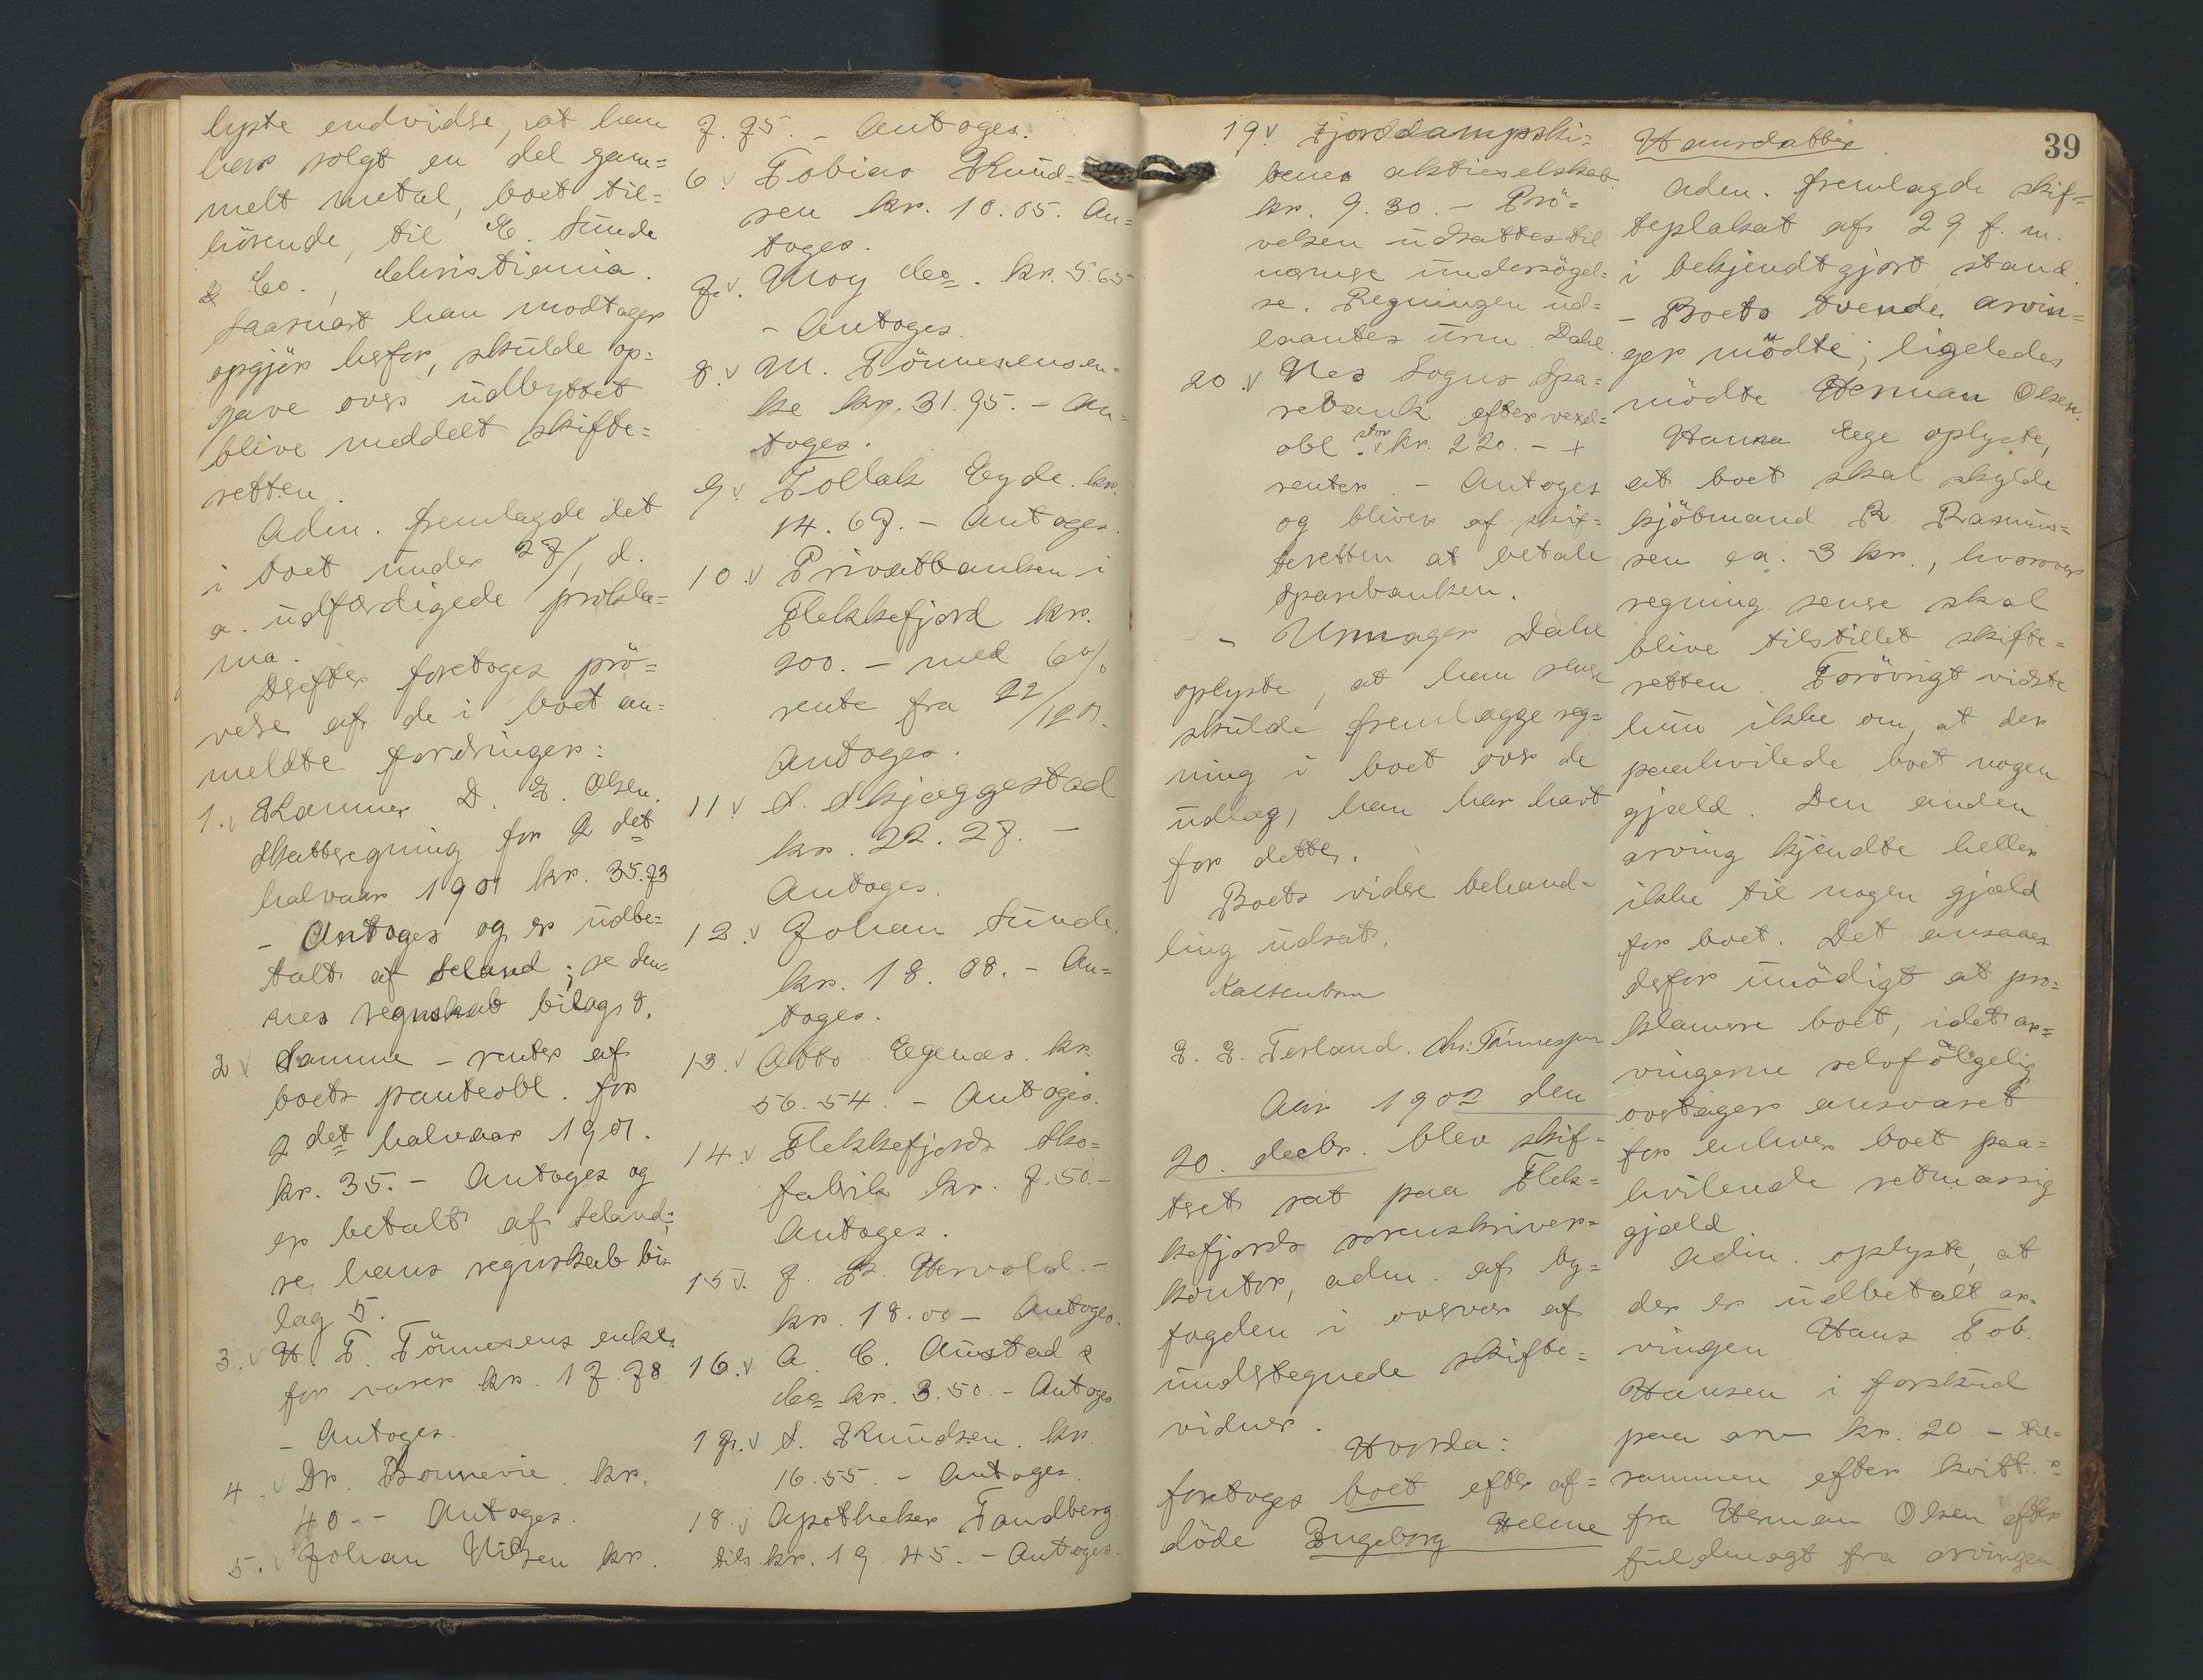 lyste endvidre, at han
har solgt en del gam=
melt metal, boet til=
hörende, til E. Sunde
& Co., Christiania.
Saasnart han modtager
opgjör herfor, skulde op=
gave over udbyttet
blive meddelt skifte=
retten.
Adm. fremlagde det
i boet under 27/1 d.
a. udfærdigede prokla=
ma.
Derefter foretoges prö=
velse af de i boet an=
meldte fordringer:
1. v Kæmner D. E. Olsen.
Skatteregning for 2 det
halvaar 1901 kr. 35.73
- Antoges og er udbe=
talt af Seland; se den=
nes regnskab bilag 8.
2 v Samme - renter af
boets panteobl. for
2 det halvaar 1901.
kr. 35. - Antoges og
er betalt af Seland;
se hans regnskab bi=
lag 5.
3. v H. F. Tönnesens enke.
for varer kr. 17.78
- Antoges.
4. v Dr. Bonnevie kr.
40 - - Antoges.
5. v Johan Nilsen kr.
7.75. - Antoges.
6. v Tobias Knud=
sen kr. 10.05. An=
toges.
7. v Moy & Co. kr. 5.65
- Antoges.
8. v M. Tönnesens en=
ke kr. 31.95. - An=
toges.
9. v Tollak Eyde. kr.
14.67. - Antoges.
10. v Privatbanken i
Flekkefjord kr.
200. - med 6 %
rente fra 22/12 01.
Antoges.
11. v S. Skjæggestad
kr. 22.27. -
Antoges.
12. v Johan Sunde.
kr. 18.08. - An=
toges.
13. v Otto Egenæs. kr.
56.54. - Antoges.
14. v Flekkefjords Sko=
fabrik kr. 7.50. -
Antoges.
15 v. J. B. Hervold. -
kr. 18.00 - Antoges.
16. v A. C. Austad &
Co kr. 3.50. - Antoges.
17. v S. Knudsen. kr.
16.55 - Antoges.
18. v Apotheker Tandberg
tils. kr. 19.45. - Antoges.
19. v Fjorddampski=
benes aktieselskab.
kr. 9.30. - Prö=
velsen udsattes til
nærmere undersögel=
se. Regningen ud=
laantes urm. Dahl.
20. v Nes Sogns Spa=
rebank efter vexel=
obl. stor kr. 220. - +
renter. - Antoges
og bliver af skif=
teretten at betale
sparebanken.
- Urmager Dahl
oplyste, at han senere
skulde fremlægge reg=
ning i boet over de
udlag, han har havt
for dette.
Boets videre behand=
ling udsat.
Kaltenborn
E. E. Terland. Chr. Tönnessen
39
Aar 1902 den
20. decbr. blev skif=
teret sat paa Flek=
kefjords sorenskriver=
kontor, adm. af by=
fogden i overvær af
undertegnede skifte=
vidner.
Hvorda:
foretoges boet efter af=
döde Ingeborg Helene
Hansdatter.
Adm. fremlagde skif=
teplakat af 29 f. m.
i bekjendtgjort stand.
- Boets tvende arvin=
ger mödte; ligeledes
mödte Herman Olsen.
Hanna Ege oplyste,
at boet skal skylde
kjöbmand R. Rasmus=
sen ca. 3 kr., hvorover
regning senere skal
blive tilstillet skifte=
retten. Forövrigt vidste
hun ikke om, at der
paahvilede boet nogen
gjæld. Den anden
arving kjendte heller
ikke til nogen gjæld
for boet. Det ansaaes
derfor unödigt at pro=
klamere boet, idet ar=
vingerne selvfölgelig
overtager ansvaret
for enhver boet paa=
hvilende retmæssig
gjæld.
Adm. oplyste, at
der er udbetalt ar=
vingen Hans Tob.
Hansen i forskud
paa arv kr. 20 - til=
sammen efter kvitt.
fra Herman Olsen efter
fuldmagt fra arvingen.